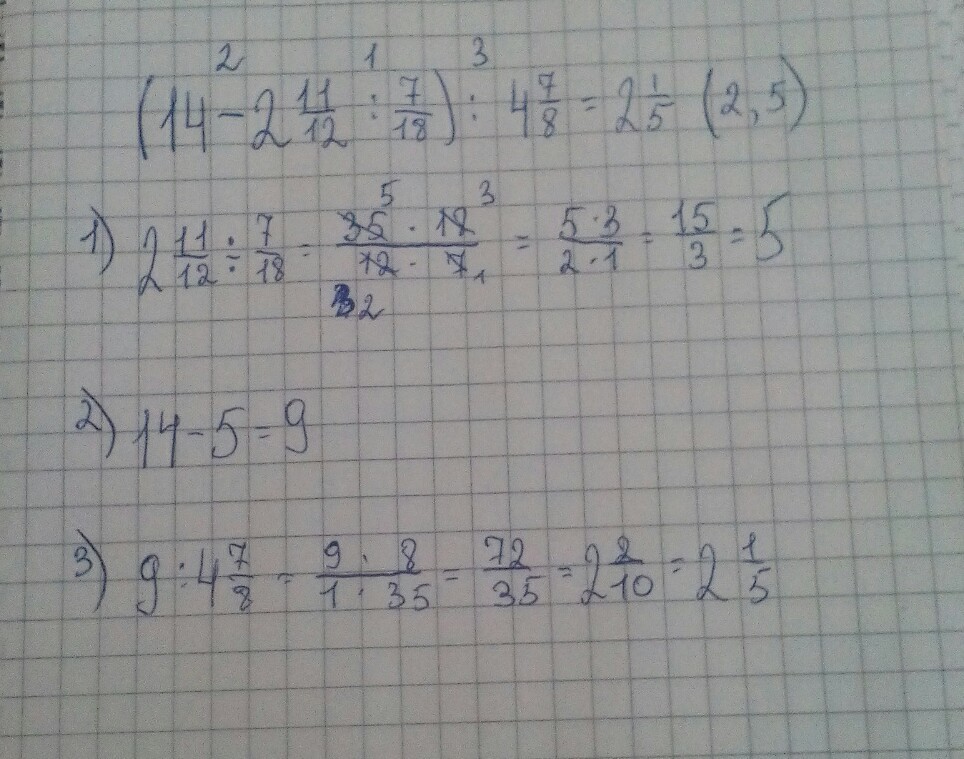 2 1 3
(14 - 2 11/12 : 7/18) : 4 7/8 = 2 1/5 (2,5)
1) 2 11/12 : 7/18 = 35 · 18 / 12 · 7 = 5·3 / 2·1 = 15/3 = 5
5 3
2 1
2) 14 - 5 = 9
3) 9 : 4 7/8 = 9 · 8 / 1 · 35 = 72/35 = 2 2/10 = 2 1/5